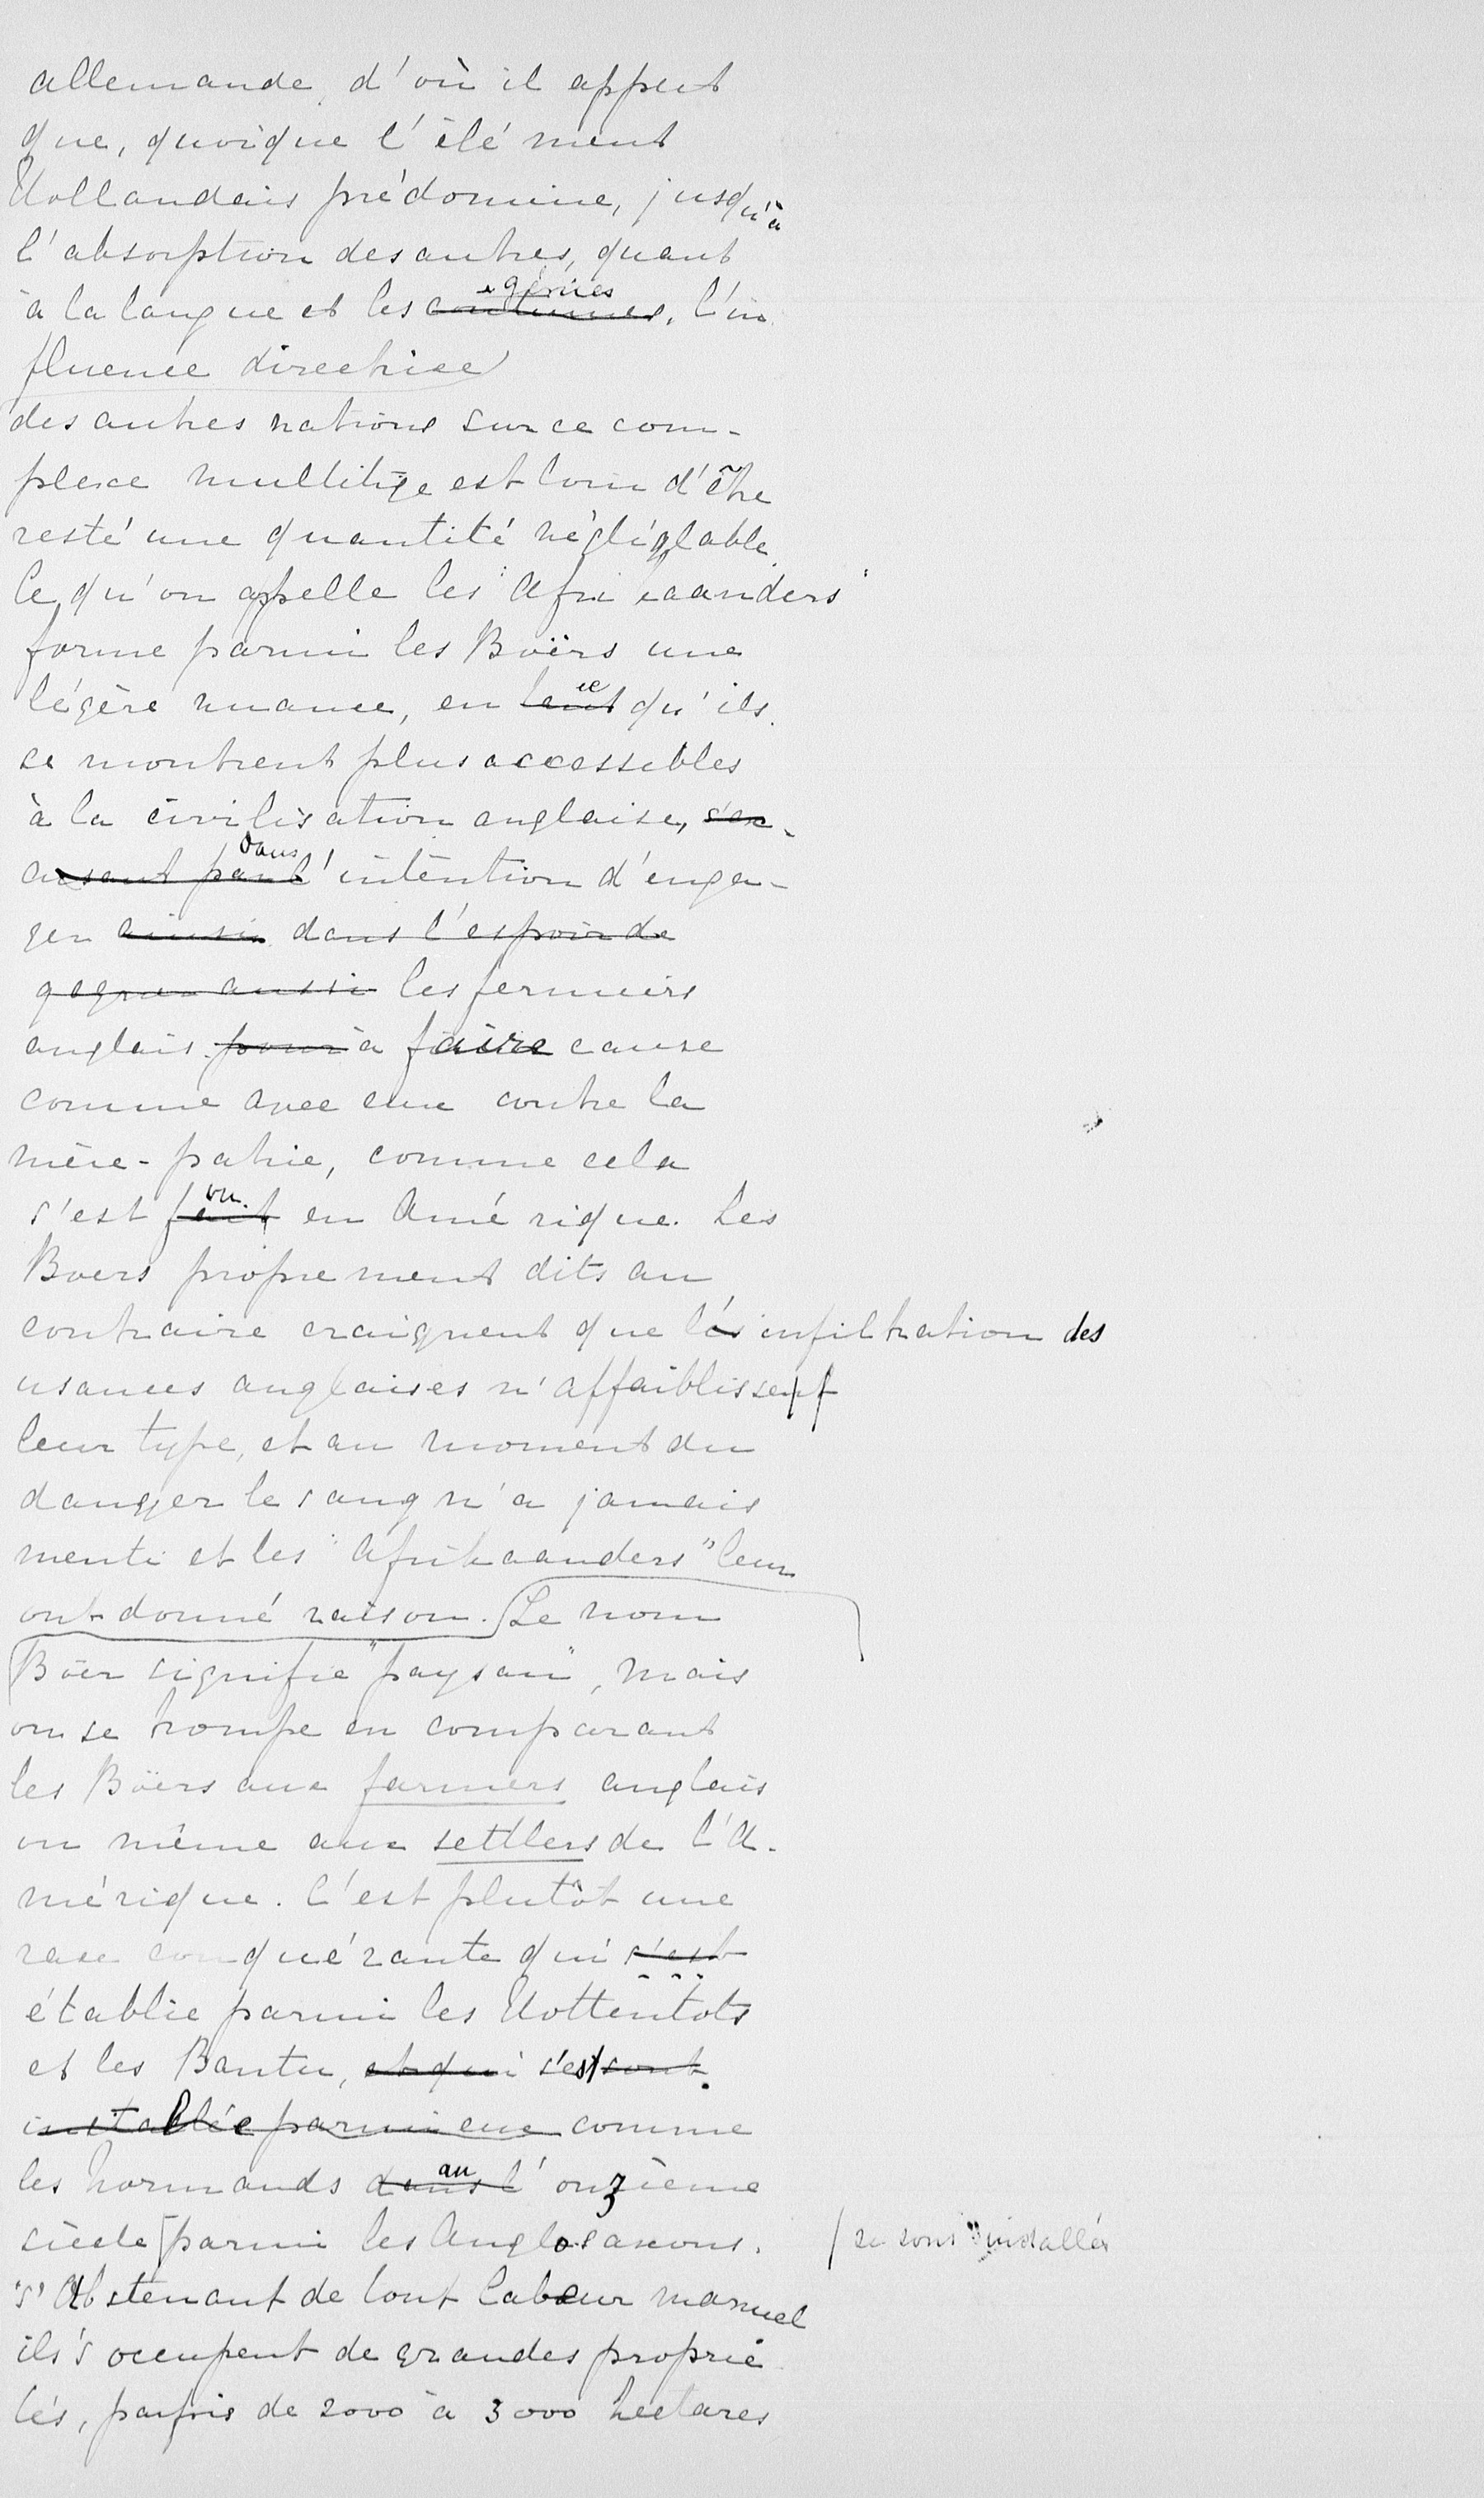 allemande, d'où il appert
que, quoique l'élément
Hollandais prédomine, jusqu'à
l'absorption des autres, quant
à la langue et les coutumes, l'in
fluence directrice
des autres nations sur ce com-
plexe multitige est loin d'être
resté une quantité négligeable.
Ce qu'on appelle les "Afrikaanders"
forme parmi les Boërs une
légère nuance, en tant ce qu'ils
se montrent plus accessibles
à la civilisation anglaise,
dans l'intention d'enga-
ger ainsi dans l'espoir de
gagner aussi les fermiers
anglais pour à faire cause
comme avec eux contre la
mère-patrie, comme cela
s'est fait vu en Amérique. Les
Boers proprement dits au
contraire craignent que l'infiltration des
usances anglaises n'affaiblissent
leur type, et au moment du
danger le sang n'a jamais
menti et les "Afrikaanders" leur
ont donné raison. Le nom
Boër signifie "paysan", mais
on se trompe en comparant
les Boërs aux farmers anglais
ou même aux settlers de l'A-
mérique. C'est plutôt une
race conquérante qui s'est
établie parmi les Hottentots
et les Bantu, et qui s'est sont
installée parmi eux comme
les Normands dans l' au onzième
siècle parmi les Anglosaxons. se sont installés
S'Abstenant de tout labeur manuel
ils s'occupent de grandes proprié
tés, parfois de 2000 à 3000 hectares